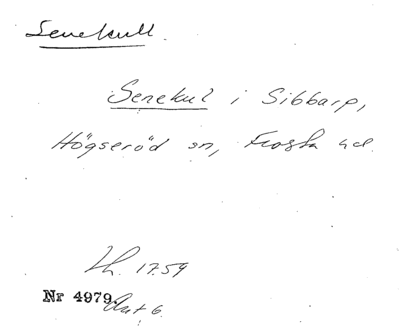 Senekull
Senekul i Sibbarp,
Högseröd sn, Frosta hd.
Lh. 1759
Nr 4979. Ant 6.